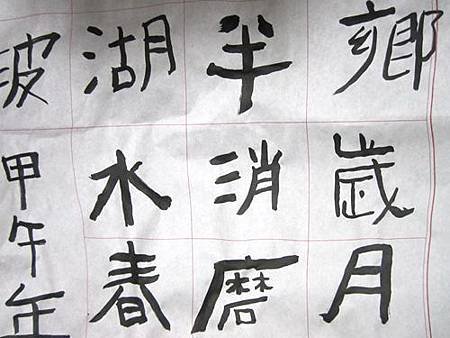 鄉歲月
半消磨
湖水春
波
甲午年